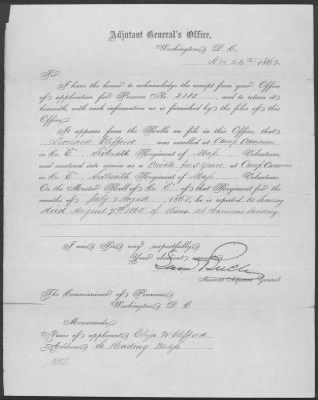 Adjutant General's Office,
Washington, D. C.
Nov 24th 1862
Sir
I have the honor to acknowledge the receipt from your Office
of application for Pension No. 2188, and to return it
herewith, with such information as is furnished by the files of this
Office.
It appears from the Rolls on file in this Office, that
Leonard Clifford was enrolled at Camp Cameron
in Co. E Sixteenth Regiment of Mass. Volunteers,
and mustered into service as a Private at Camp Cameron
in Co. E, Sixteenth Regiment of Mass. Volunteers.
On the Muster Roll of Co. E of that Regiment for the
months of July & August, 1862, he is reported as having
died August 7th 1862 at Harrisons Landing
I am, Sir, very respectfully,
Your obedient servant,
Assistant Adjutant General
The Commissioner of Pensions,
Washington, D. C.
Memoranda
Name of applicant, Eliza W. Clifford
Address, So. Reading Mass.